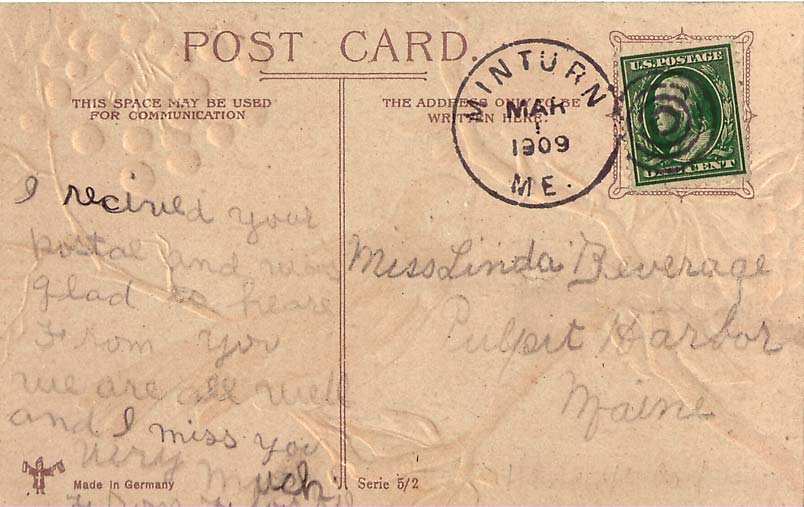 POST CARD.
THIS SPACE MAY BE USED
FOR COMMUNICATION
THE ADDRESS ONLY TO BE
WRITTEN HERE.
MINTURN
MAR
1
1909
ME.
U.S. POSTAGE
ONE CENT
I recived your
postal and was
glad to heare
From you
we are all well
and I miss you
very much
From
Miss Linda Beverage
Pulpit Harbor
Maine
Made in Germany
Serie 5/2